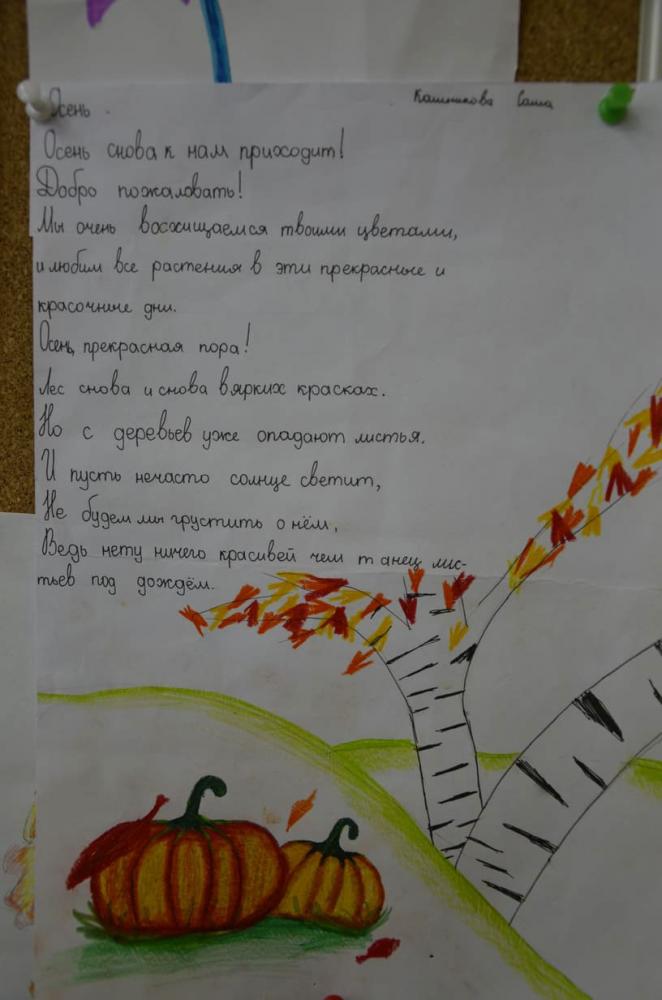 Осень
Кашникова Саша
Осень снова к нам приходит!
Добро пожаловать!
Мы очень восхищаемся твоими цветами,
и любим все растения в эти прекрасные и
красочные дни.
Осень, прекрасная пора!
Лес снова и снова в ярких красках.
Но с деревьев уже опадают листья.
И пусть нечасто солнце светит,
Не будем мы грустить о нём,
Ведь нету ничего красивей чем танец лис-
тьев под дождём.